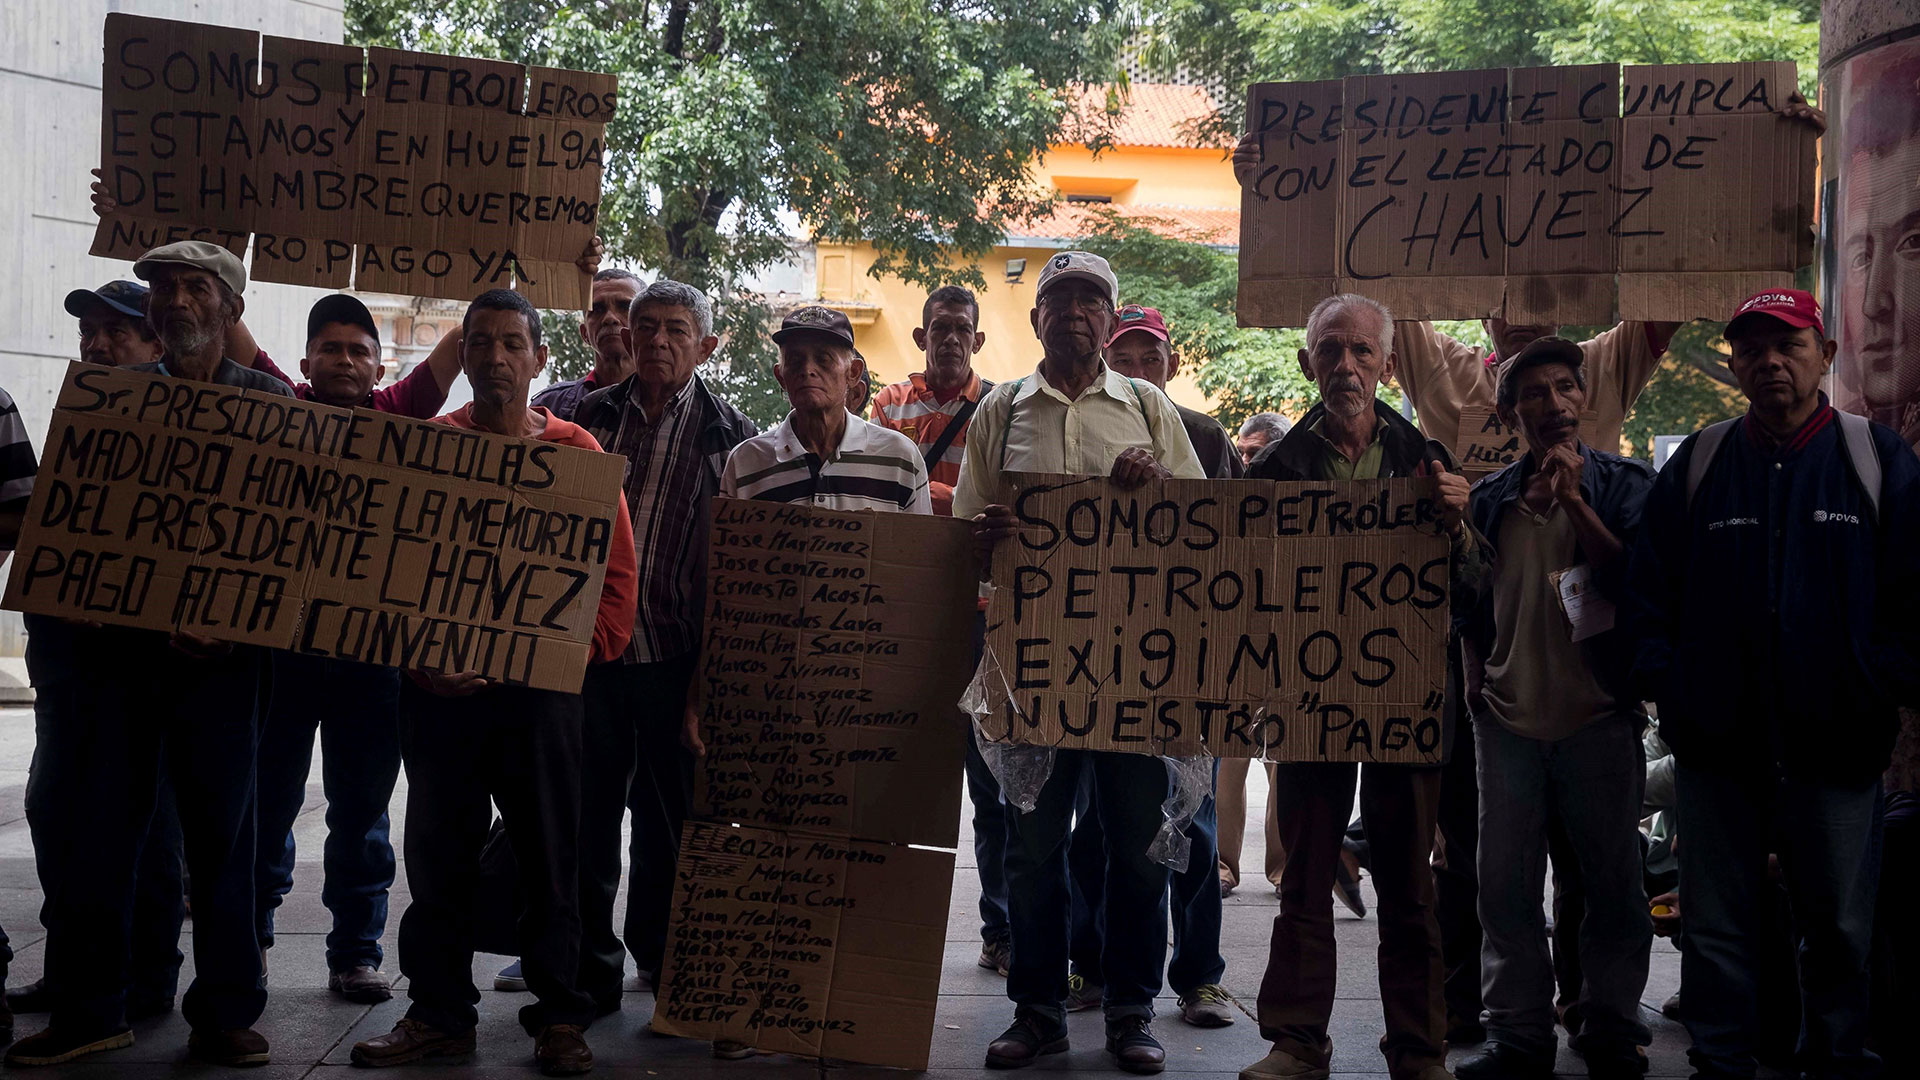 SOMOS PETROLEROS
ESTAMOS Y EN HUELGA
DE HAMBRE. QUEREMOS
NUESTRO. PAGO YA.
PRESIDENTE CUMPLA
CON EL LEGTADO DE
CHAVEZ
Sr. PRESIDENTE NICOLAS
MADURO HONRRE LA MEMORIA
DEL PRESIDENTE CHAVEZ
PAGO ACTA CONVENIO
Luis Moreno
Jose Martinez
Jose Centeno
Ernesto Acosta
Arquimedes Lava
Franklin Sacaria
Marcos Ivimas
Jose Velasquez
Alejandro Villasmin
Jesus Ramos
Humberto Sifonte
Jesus Rojas
Pablo Oropeza
Jose Medina
ELEAZAR Moreno
Jose Morales
Yian Carlos Coas
Juan Medina
Gegorio Urbina
Romero
Jairo Peña
Raul Carpio
Ricardo Bello
Hector Rodriguez
SOMOS PETROLER
PETROLEROS
EXigiMOS
NUESTRO "PAGO"
PDVSA
MORICHAL
PDVSA